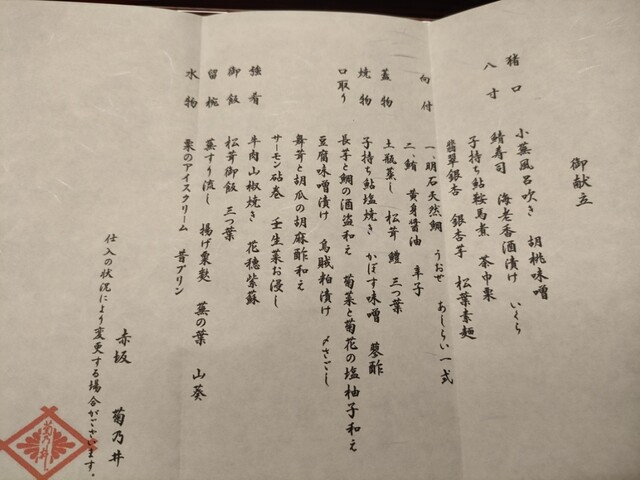 御献立
猪口 小蕪風呂吹き 胡桃味噌
八寸 鯖寿司 海老香酒漬け いくら
子持ち鮎鞍馬煮 茶巾栗
翡翠銀杏 銀杏芋 松葉素麺
向付 一、明石天然鯛 うおぜ あしらい一式
二、鮪 黄身醤油 辛子
蓋物 土瓶蒸し 松茸 鱧 三つ葉
焼物 子持ち鮎塩焼き かぼす味噌 蓼酢
口取り 長芋と鯛の酒盗和え 菊菜と菊花の塩柚子和え
豆腐味噌漬け 烏賊粕漬け 〆さごし
舞茸と胡瓜の胡麻酢和え
サーモン砧巻 壬生菜お浸し
強肴 牛肉山椒焼き 花穂紫蘇
御飯 松茸御飯 三つ葉
留椀 蕪すり流し 揚げ粟麩 蕪の葉 山葵
水物 栗のアイスクリーム 昔プリン
赤坂 菊乃井
仕入の状況により変更する場合がございます。
菊乃井